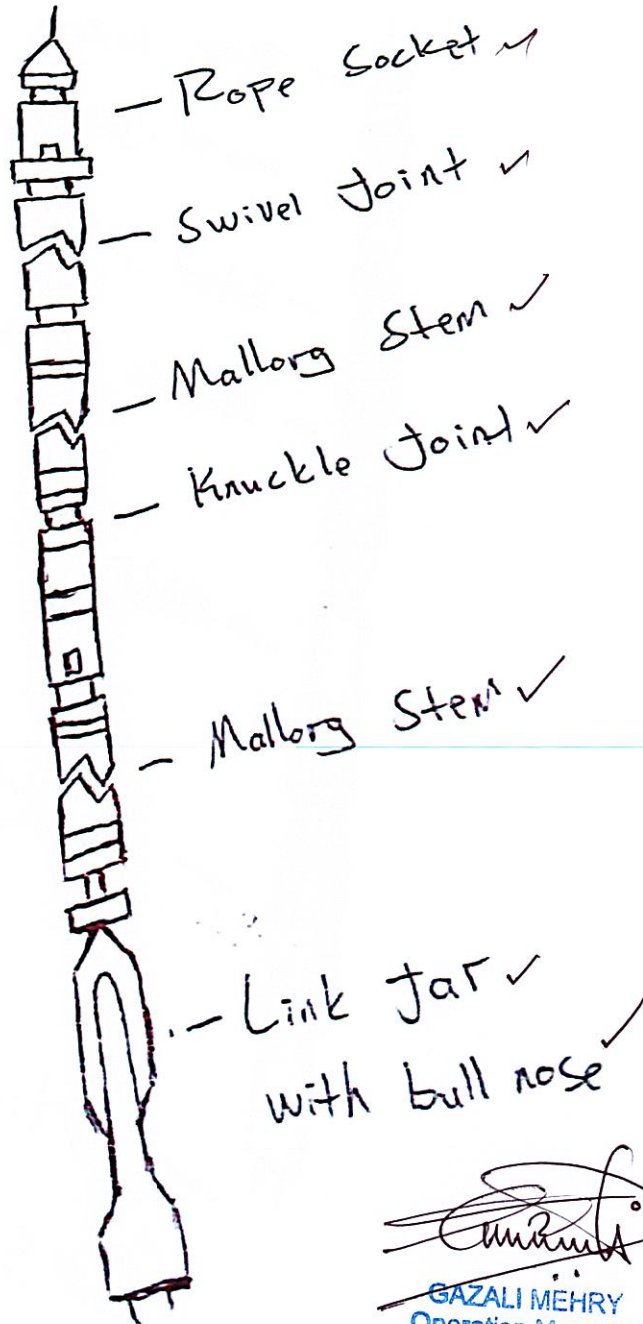 Rope Socket ✓
Swivel Joint ✓
Mallorg Stem ✓
Knuckle Joint ✓
Mallorg Stem ✓
Link Jar ✓
with bull nose ✓
GAZALI MEHRY